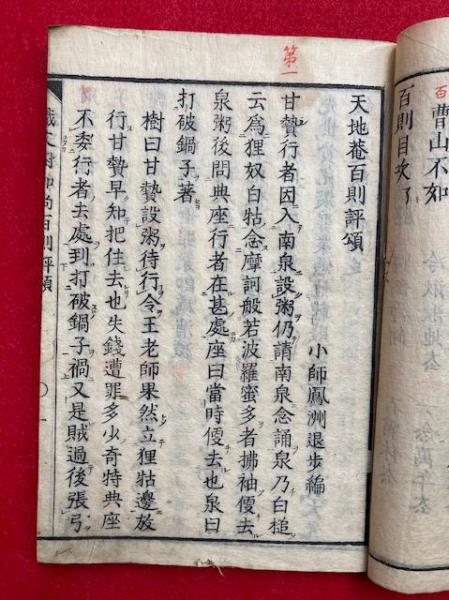 百 曹山不如
百則目次了
第一
天地菴百則評頌
小師鳳洲退步編
甘贄行者因入南泉設粥仍請南泉念誦泉乃白槌
云爲狸奴白牯念摩訶般若波羅蜜多者拂袖便去
泉粥後問典座行者在甚處座曰當時便去也泉曰
打破鍋子著
樹曰甘贄設粥待行令王老師果然立狸牯邊放
行甘贄早知把住去也失錢遭罪多少奇特典座
不委行者去處到打破鍋子禍又是賊過後張弓
和尚百則評頌